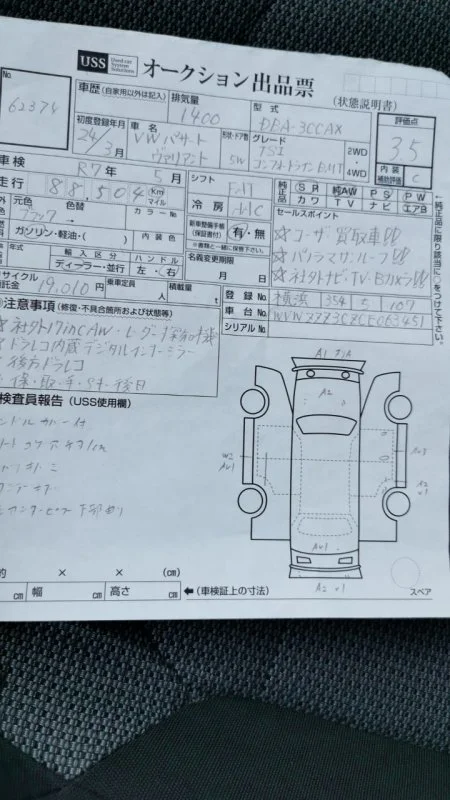 USS Used car System Solutions オークション出品票 (状態説明書)
No. 62374
車歴 (自家用以外は記入)
排気量 1400
型式 DBA-3CCAX
評価点 3.5
内装補助評価 C
初度登録年月 24/3月
車名 VW パサート ヴァリアント
形状・ドア数 5W
グレード TSI コンフォートライン BMT
2WD・4WD
車検 R7年 5月
シフト FAT
純正品 SR 純AW PS PW
カワ TV ナビ エアB
走行 88,504 Km マイル
冷房 AAC
セールスポイント
元色 ブラック → 色替
カラーNo.
新車整備手帳(保証書付) 有・無
※書類と一緒に保管下さい。
☆ユーザー買取車!!
☆パノラマサンルーフ!!
☆社外ナビ・TV・Bカメラ!!
ガソリン・軽油・( )
内装色
年式
輸入区分 ディーラー・並行
ハンドル 左・右
名義変更期限 月 日
リサイクル預託金 19,010円
乗車定員 人
積載量 t
登録No. 横浜 354 ち 107
車台No.
シリアルNo.
←純正品に限り該当に○をつけて下さい。
注意事項 (修復・不具合箇所および状態等)
ドラレコ内蔵デジタルインナーミラー
後方ドラレコ
検査員報告 (USS使用欄)
ハンドルカバー付
A1
A2
W2
AV1
AV3
A2
V1
AV1
A2 V1
約 × × (cm)
cm 幅 cm 高さ cm ←(車検証上の寸法)
スペア